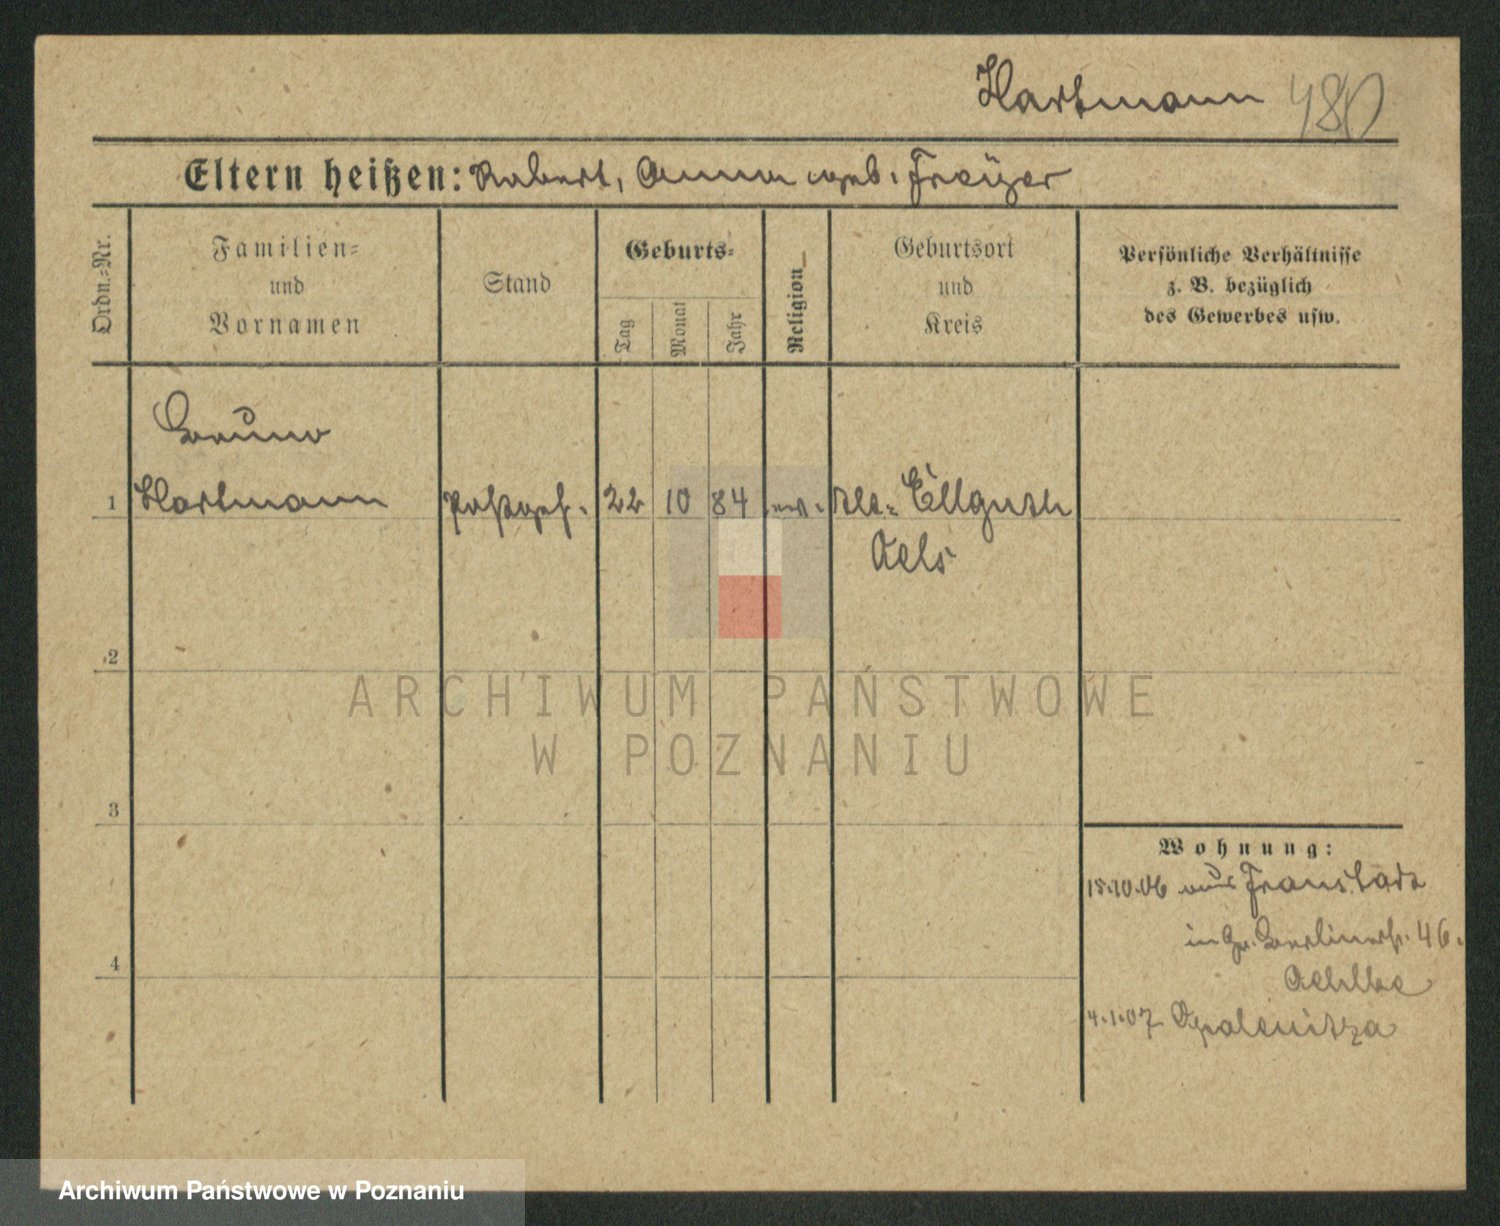 Hartmann 480
Eltern heißen: Robert, Anna geb. Freÿer
Ordn.=Nr.
Familien=
und
Vornamen
Stand
Geburts=
Tag
Monat
Jahr
Religion
Geburtsort
und
Kreis
Persönliche Verhältnisse
z. B. bezüglich
des Gewerbes usw.
Bruno
1 Hartmann Postgeh. 22 10 84 ev. Ellguth
Oels
2
3
4
Wohnung:
15.10.06 aus Fraustadt
in Berlinerstr. 46.
4.1.07 Opalenitza
ARCHIWUM PAŃSTWOWE
W POZNANIU
Archiwum Państwowe w Poznaniu